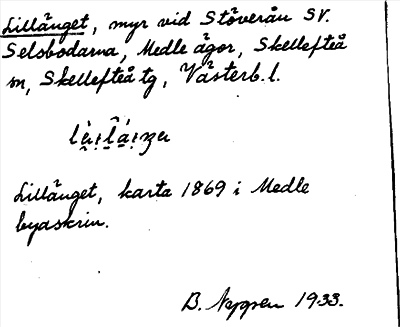 Lillänget, myr vid Stöverån SV.
Selsbodarna, Medle ägor, Skellefteå
m, Skellefteå tg, Västerb. l.
Lillänget, karta 1869 i Medle
byaskrin.
B. Nygren 1933.